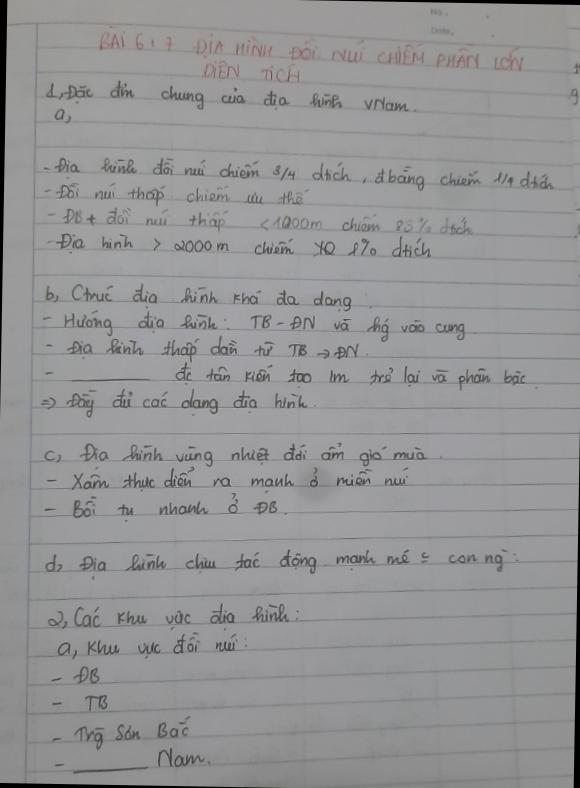 No.
Date.
BÀI 6+7 ĐỊA HÌNH ĐỒI NÚI CHIẾM PHẦN LỚN
DIÊN TÍCH
1, Đặc đm chung của địa hình VNam.
a,
- Địa hình đồi núi chiếm 3/4 dtích, đbằng chiếm 1/4 dtích
- Đồi núi thấp chiếm ưu thế
- ĐB + đồi núi thấp <1000m chiếm 85% dtích
- Địa hình > 2000m chiếm 1% dtích
b, Ctrúc địa hình khá đa dạng
- Hướng địa hình: TB - ĐN và hg vào cung.
- Địa hình thấp dần từ TB → ĐN.
- ________ đc tân kiến tạo lm trẻ lại và phân bậc.
=> Đầy đủ các dạng địa hình.
c, Địa hình vùng nhiệt đới ẩm gió mùa.
- Xâm thực diễn ra mạnh ở miền núi
- Bồi tụ nhanh ở ĐB.
d, Địa hình chịu tác động mạnh mẽ = con ng:
2, Các khu vực địa hình:
a, Khu vực đồi núi:
- ĐB
- TB
- Trg Sơn Bắc
- ________ Nam.